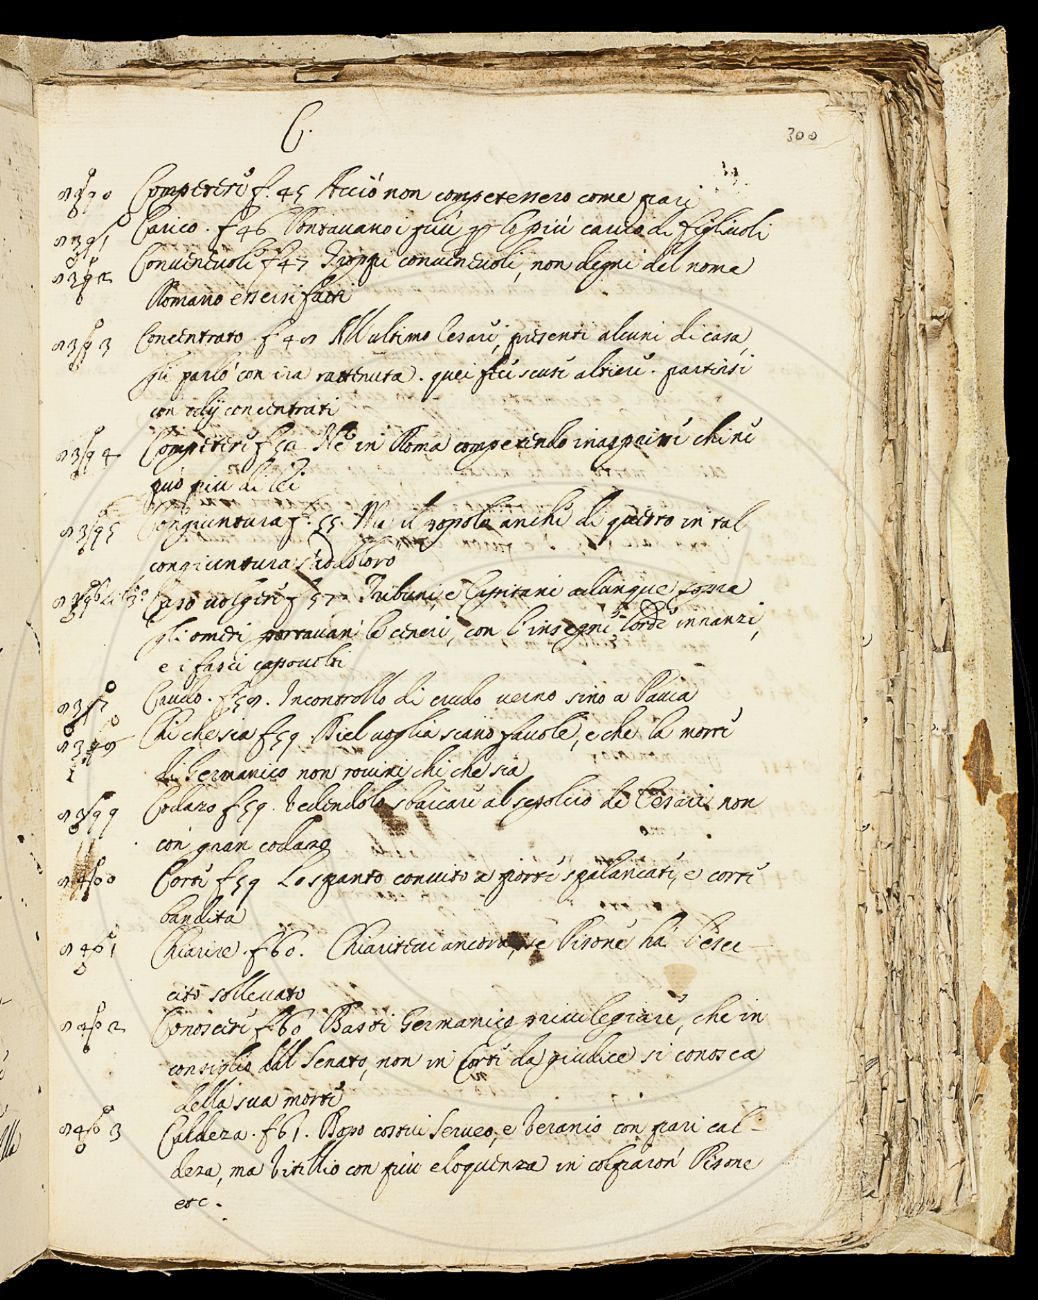 C.
300
Competere f. 45 Acciò non competessero come pari
Carico. f 46 Contavano i più per lo più carico di figliuoli
Convenevole f 47 Trionfi convenevoli, non degni del nome
Romano essersi fatti
Concentrato f 48 All'ultimo Cesare, presenti alcuni di casa,
gli parlò con ira rattenuta. quei fece scuse altiere. partirsi
con odij concentrati
Competere f 50 Nè in Roma competendo inasprire chi ne
può più di lei
Congiuntura f. 55. Ma il popolo anche di questo in tal
congiuntura si dolloro
Capo volgere f 57 Tribuni e Capitani
gli omeri portavan le ceneri, con l'insegne lorde innanzi,
e i fasci capovolti
Crudo. f 58. Incontrollo di crudo verno sino a Pavia
Chi che sia f 59 Piel voglia siano favole, e che la morte
di Germanico non rovini chi che sia
Codazo f 59. Vedendolo sbarcare al sepolcro de Cesari non
con gran codazo
Corte f 59 Lo spanto convito a porte spalancate, e corte
bandita
Chiarire. f 60. Chiaritevi ancora, se Pisone ha l'eser-
cito sollevato
Conoscere f 60 Basti Germanico privilegiare, che in
consiglio dal Senato, non in Corte da giudice si conosca
della sua morte
Caldeza. f 61. Dopo costui Serveo, e Veranio con pari cal-
deza, ma Vitellio con più eloquenza in colparon Pisone
etc.